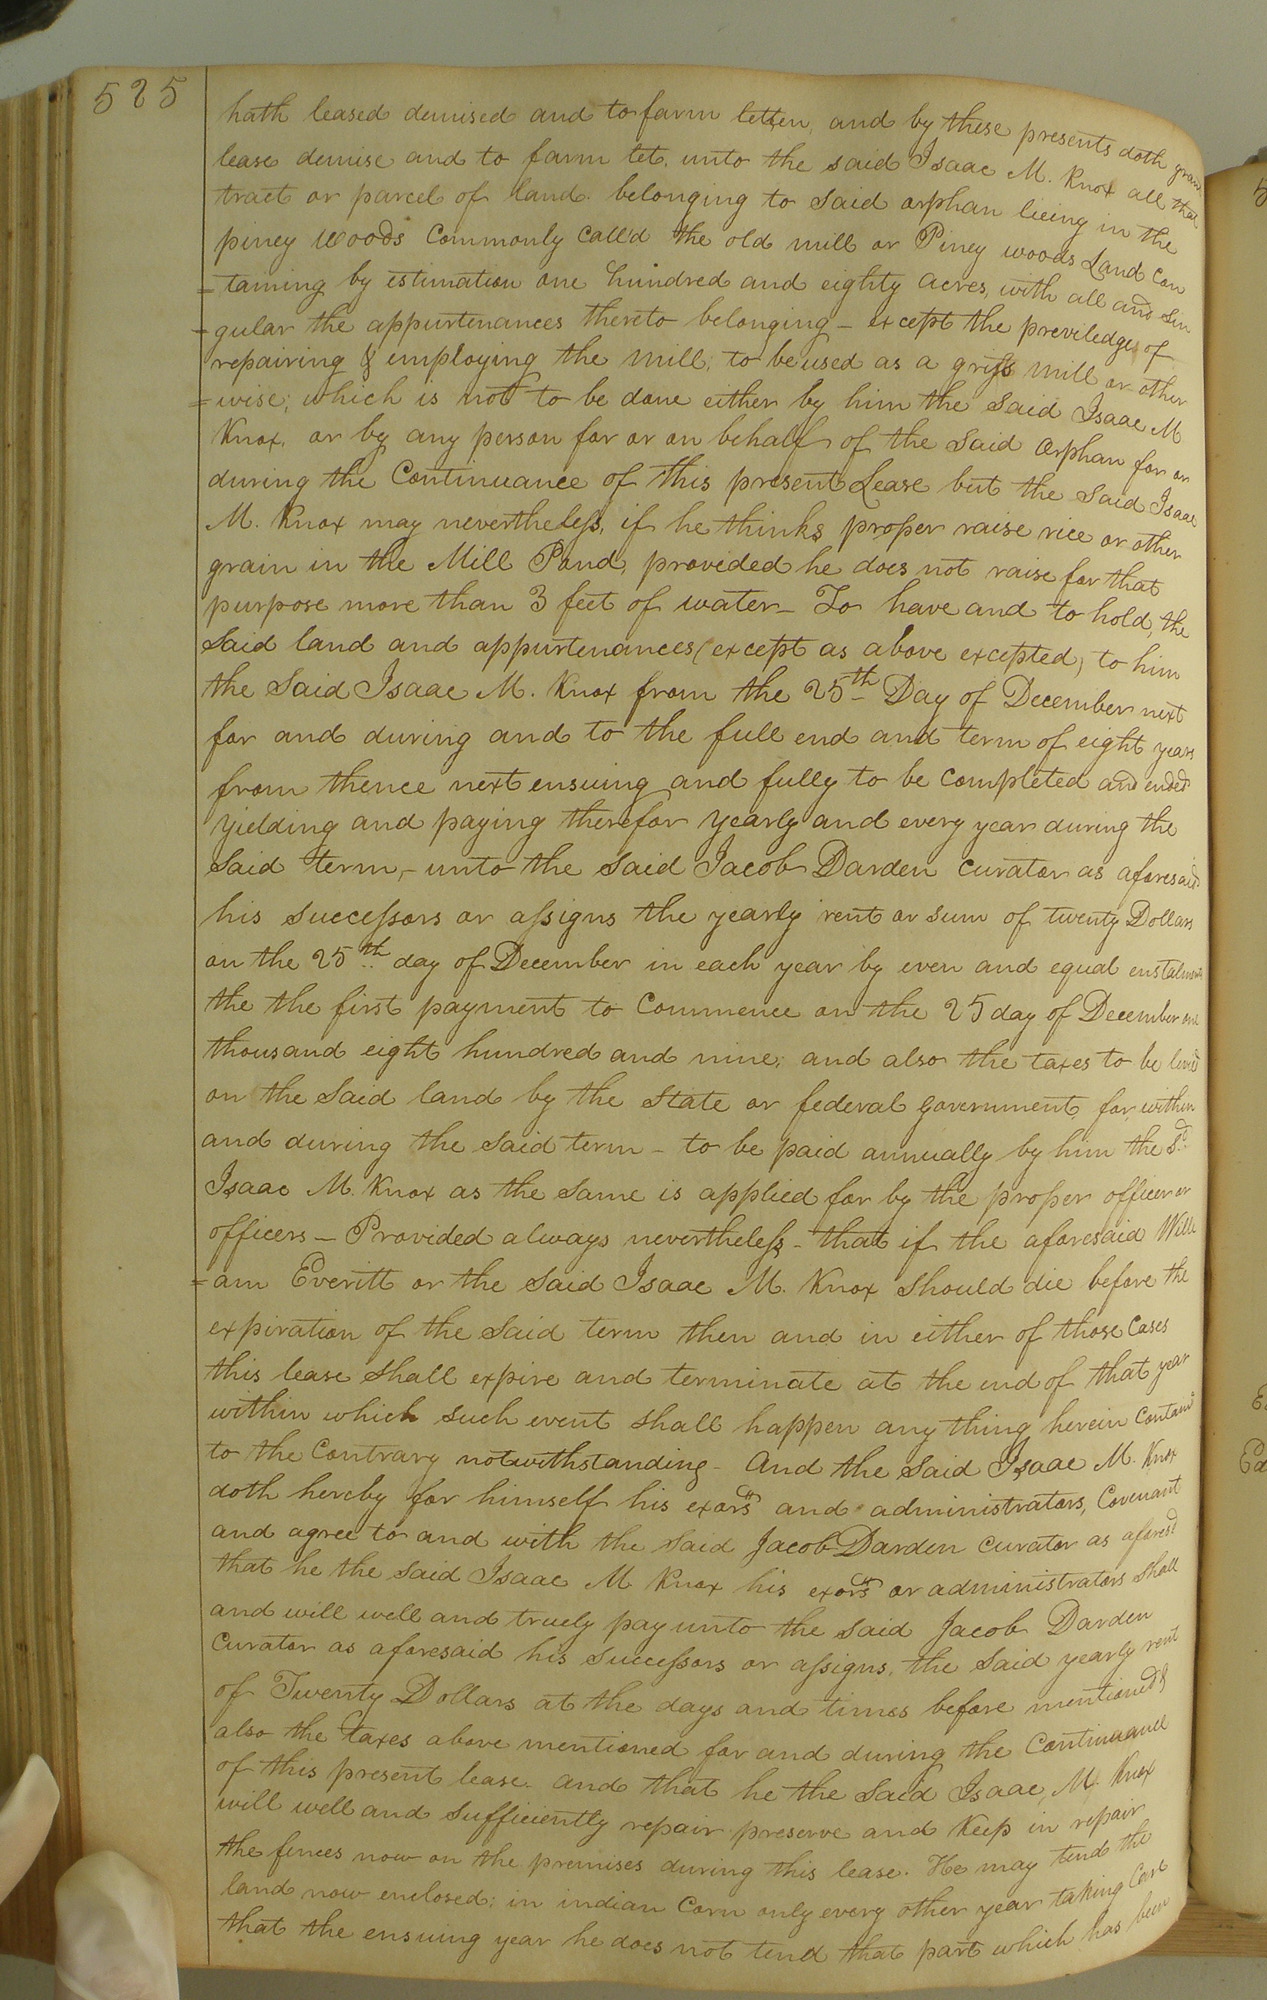 525
hath leased demised and to farm letten, and by these presents doth grant
lease demise and to farm let, unto the said Isaac M. Knox all that
tract or parcel of land belonging to said orphan lieing in the
piney woods Commonly Call'd the old mill or Piney woods Land Con
=taining by estimation one hundred and eighty acres, with all and Sin
=gular the appurtenances thereto belonging – except the previledge of
repairing & employing the Mill, to be used as a grist mill or other
=wise; which is not to be done either by him the Said Isaac M
Knox, or by any person for or on behalf of the Said Orphan for or
during the Continuance of this present Lease but the Said Isaac
M. Knox may nevertheless, if he thinks proper raise rice or other
grain in the Mill Pond, provided he does not raise for that
purpose more than 3 feet of water – To have and to hold, the
Said land and appurtenances (except as above excepted) to him
the Said Isaac M. Knox from the 25th Day of December next
for and during and to the full end and term of eight years
from thence next ensuing and fully to be Completed and ended
yielding and paying therefor yearly and every year during the
Said term, – unto the Said Jacob Darden Curator as aforesaid
his successors or assigns the yearly rent or sum of twenty Dollars
on the 25th day of December in each year by even and equal enstalments
the the first payment to Commence on the 25 day of December one
thousand eight hundred and nine; and also the taxes to be levied
on the Said land by the State or federal government for within
and during the Said term – to be paid annually by him the Sd
Isaac M. Knox as the Same is applied for by the proper officer or
officers – Provided always nevertheless – that if the aforesaid Willi
=am Everitt or the Said Isaac M. Knox Should die before the
expiration of the Said term then and in either of those Cases
this lease Shall expire and terminate at the end of that year
within which such event Shall happen any thing herein Contain'd
to the Contrary notwithstanding – And the Said Isaac M. Knox
doth hereby for himself his exors and administrators, Covenant
and agree to and with the Said Jacob Darden Curator as aforesd
that he the Said Isaac M Knox his exors or administrators Shall
and will well and truely pay unto the Said Jacob Darden
Curator as aforesaid his Successors or assigns, the Said yearly rent
of Twenty Dollars at the days and times before mentioned &
also the taxes above mentioned for and during the Continuance
of this present lease. and that he the Said Isaac, M. Knox
will well and Sufficiently repair preserve and Keep in repair
the fences now on the premises during this lease. He may tend the
land now enclosed; in indian Corn only every other year taking Care
that the ensuing year he does not tend that part which has been